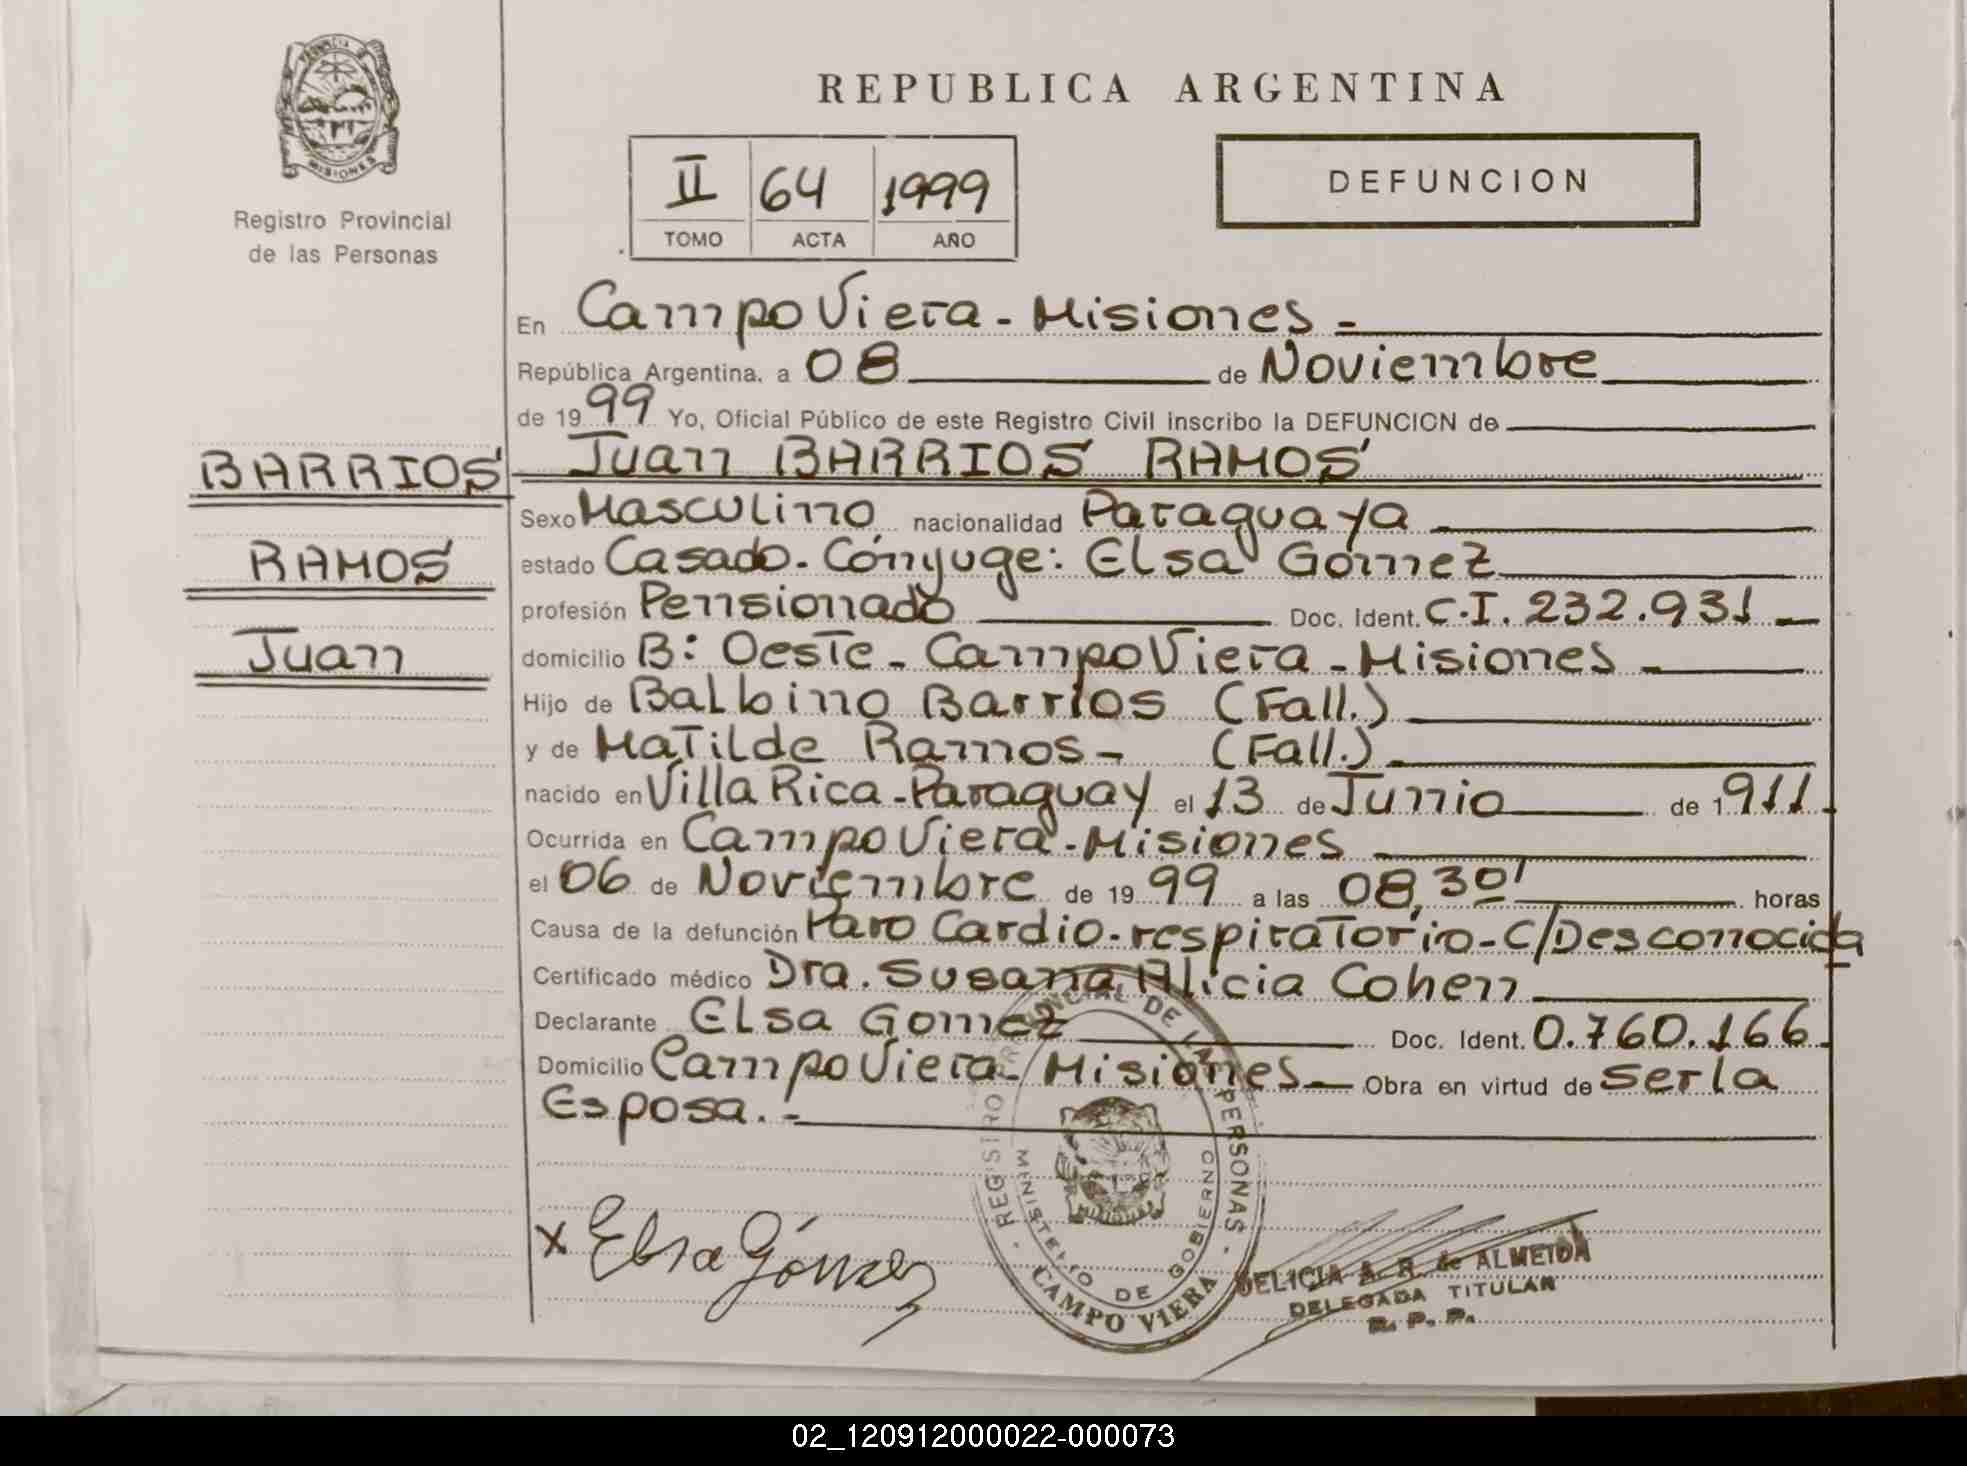 PROVINCIA DE
MISIONES
Registro Provincial
de las Personas
REPUBLICA ARGENTINA
II 64 1999
TOMO ACTA AÑO
DEFUNCION
En Campo Viera - Misiones -
República Argentina, a 08 de Noviembre
de 1999 Yo, Oficial Público de este Registro Civil inscribo la DEFUNCION de
BARRIOS Juan BARRIOS RAMOS
Sexo Masculino nacionalidad Paraguaya
RAMOS estado Casado. Cónyuge: Elsa Gómez
profesión Pensionado Doc. Ident. C.I. 232.931
Juan domicilio B: Oeste - Campo Viera - Misiones -
Hijo de Balbino Barrios (Fall.)
y de Matilde Ramos - (Fall.)
nacido en Villa Rica - Paraguay el 13 de Junio de 1911
Ocurrida en Campo Viera - Misiones
el 06 de Noviembre de 1999 a las 08,30' horas
Causa de la defunción Paro Cardio-respiratorio - C/Desconocida
Certificado médico Dra. Susana Alicia Cohen
Declarante Elsa Gomez Doc. Ident. 0.760.166
Domicilio Campo Viera - Misiones - Obra en virtud de ser la
Esposa. -
REGISTRO PROVINCIAL DE LAS PERSONAS
MINISTERIO DE GOBIERNO
CAMPO VIERA
x Elsa Gómez
DELICIA A. R. de ALMEIDA
DELEGADA TITULAR
R. P. P.
02_120912000022-000073